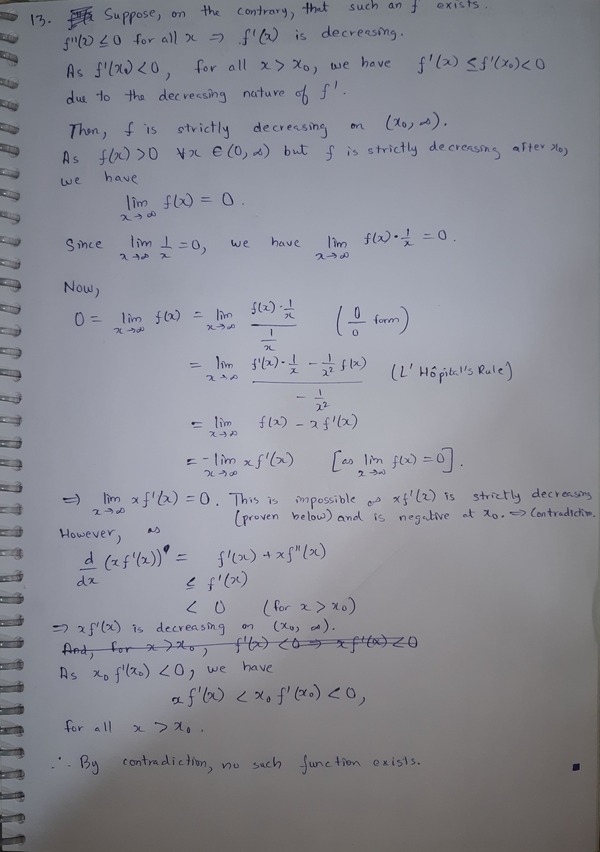 13. Suppose, on the contrary, that such an f exists.
f''(x) ≤ 0 for all x ⇒ f'(x) is decreasing.
As f'(x₀) < 0, for all x > x₀, we have f'(x) ≤ f'(x₀) < 0
due to the decreasing nature of f'.
Then, f is strictly decreasing on (x₀, ∞).
As f(x) > 0 ∀x ∈ (0, ∞) but f is strictly decreasing after x₀,
we have
lim_{x→∞} f(x) = 0.
Since lim_{x→∞} 1/x = 0, we have lim_{x→∞} f(x)·1/x = 0.
Now,
0 = lim_{x→∞} f(x) = lim_{x→∞} (f(x)·1/x)/(1/x) (0/0 form)
= lim_{x→∞} (f'(x)·1/x − 1/x² f(x))/(−1/x²) (L'Hôpital's Rule)
= lim_{x→∞} f(x) − x f'(x)
= −lim_{x→∞} x f'(x) [as lim_{x→∞} f(x) = 0].
⇒ lim_{x→∞} x f'(x) = 0. This is impossible as x f'(x) is strictly decreasing
(proven below) and is negative at x₀. ⇒ Contradiction.
However, as
d/dx (x f'(x)) = f'(x) + x f''(x)
≤ f'(x)
< 0 (for x > x₀)
⇒ x f'(x) is decreasing on (x₀, ∞).
And, for x > x₀, f'(x) < 0 ⇒ x f'(x) < 0
As x₀ f'(x₀) < 0, we have
x f'(x) < x₀ f'(x₀) < 0,
for all x > x₀.
∴ By contradiction, no such function exists. ■